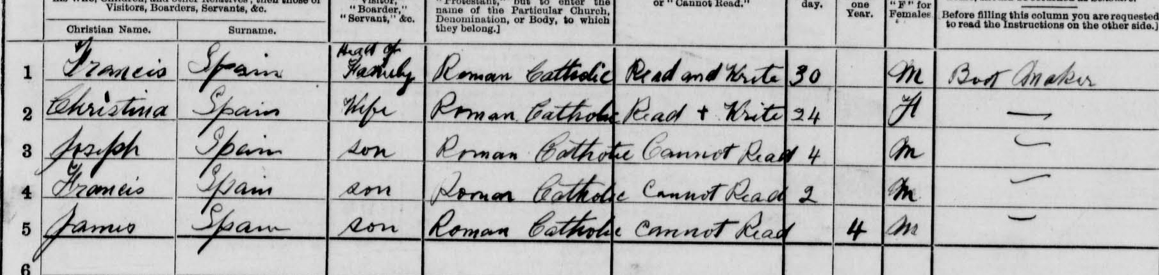 Visitors, Boarders, Servants, &c.
Visitor,
"Boarder,"
"Servant," &c.
"Protestant," but to enter the
name of the Particular Church,
Denomination, or Body, to which
they belong.]
or "Cannot Read."
day.
one
Year.
"F" for
Females.
Before filling this column you are requested
to read the Instructions on the other side.]
Christian Name. Surname.
1 Francis Spain Head of Family Roman Catholic Read and Write 30 M Boot Maker
2 Christina Spain Wife Roman Catholic Read + Write 24 F —
3 Joseph Spain son Roman Catholic Cannot Read 4 M —
4 Francis Spain son Roman Catholic Cannot Read 2 M —
5 James Spain son Roman Catholic cannot Read 4 M —
6